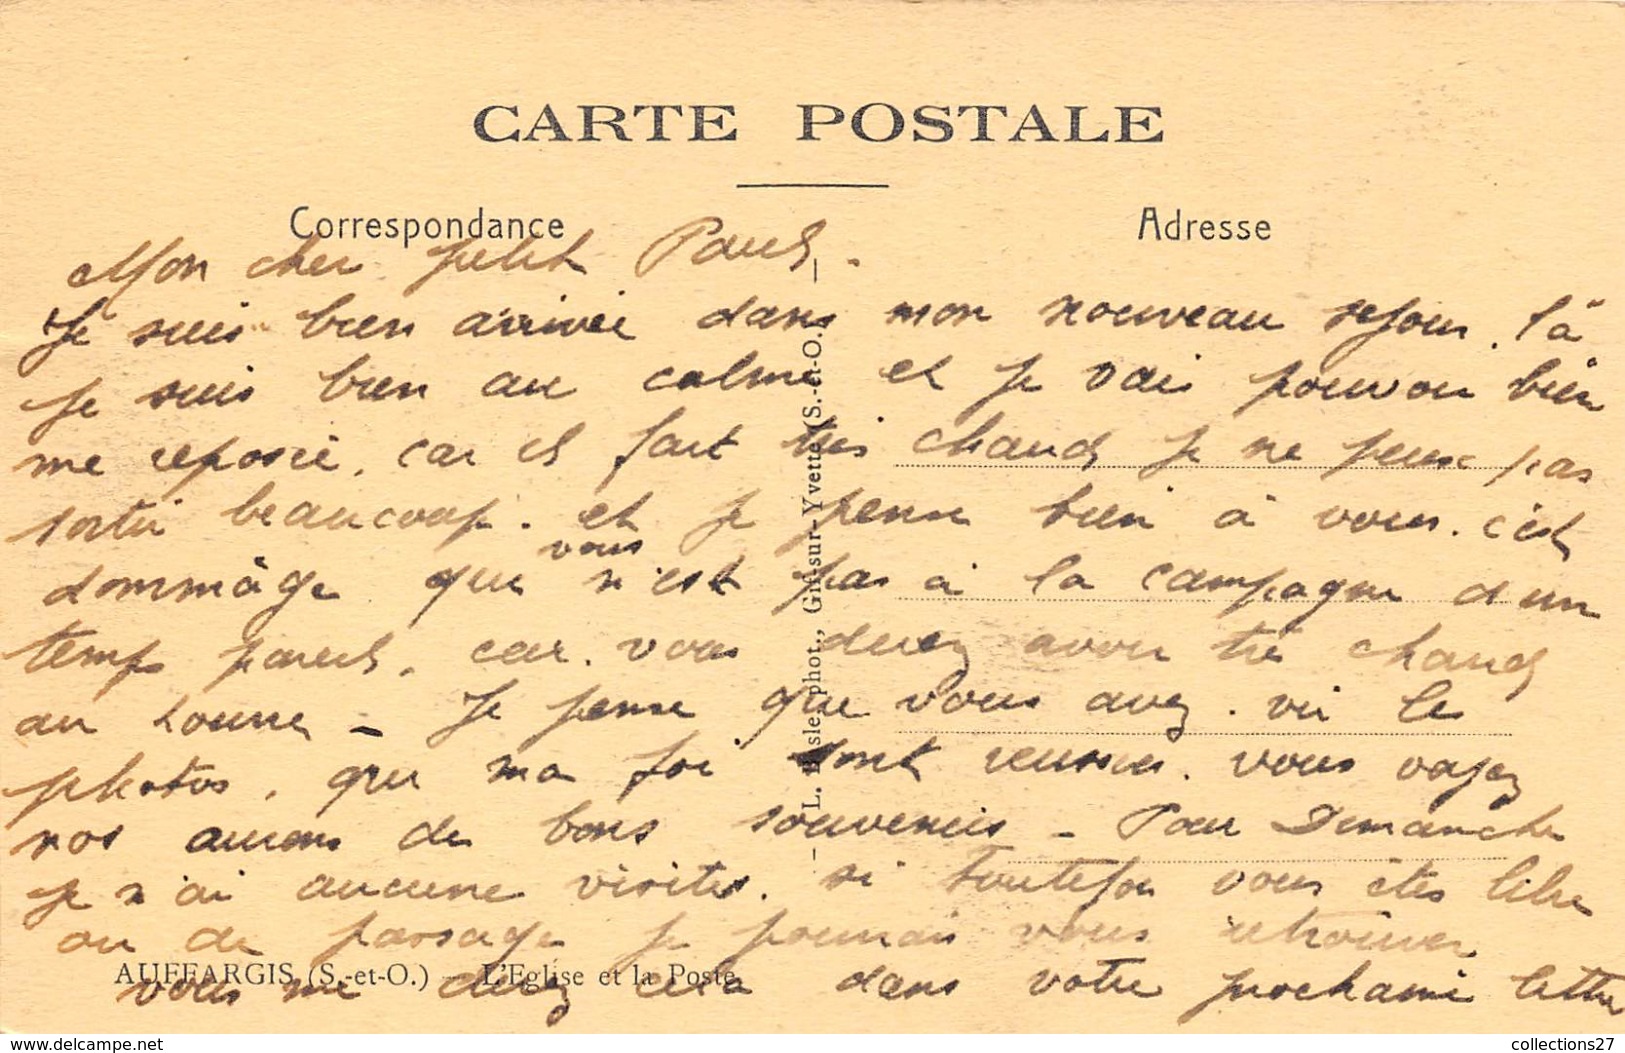 CARTE POSTALE
Correspondance
Adresse
Mon cher petit Paul.
Je suis bien arrivée dans mon nouveau sejour. là
je suis bien au calme et je vais pouvoir bien
me reposée, car il fait très chaud je ne peux pas
sortir beaucoup. et je pense bien à vous. c'est
dommâge que vous n'est pas à la campagne d'un
temps pareil, car vous devez avoir très chaud
au - Je pense que vous avez vu les
photos, qui ma foi sont reussies. vous voyez
nos aurons de bons souvenirs - Pour Dimanche
je n'ai aucune visites. si toutefois vous êtes libre
ou de passage je pourrais vous retrouver
vous me direz cela dans votre prochaine lettre
AUFFARGIS (S.-et-O.) — L'Eglise et la Poste
phot., Gif-sur-Yvette (S.-et-O.)
www.delcampe.net
collections27